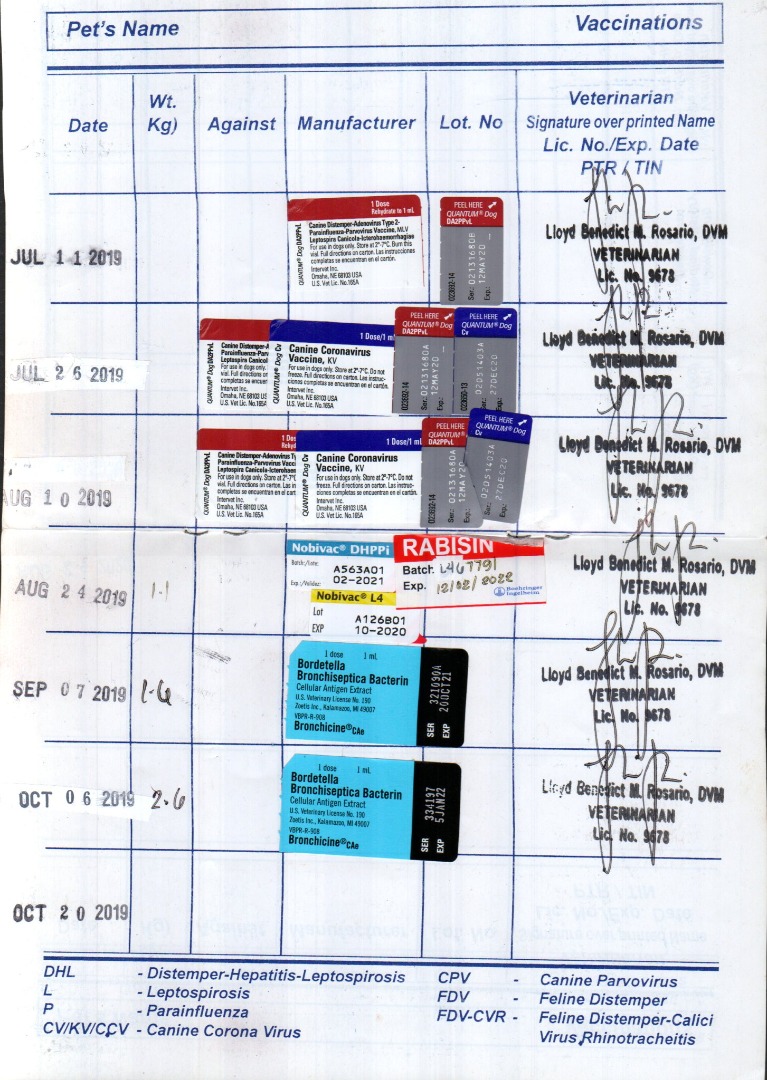 Pet's Name Vaccinations
Date
Wt.
Kg)
Against
Manufacturer
Lot. No
Veterinarian
Signature over printed Name
Lic. No./Exp. Date
PTR / TIN
JUL 11 2019
QUANTUM® Dog DA2PPvL
1 Dose
Rehydrate to 1 mL
Canine Distemper-Adenovirus Type 2-
Parainfluenza-Parvovirus Vaccine, MLV
Leptospira Canicola-Icterohaemorrhagiae
For use in dogs only. Store at 2°-7°C. Burn this
vial. Full directions on carton. Las instrucciones
completas se encuentran en el cartón.
Intervet Inc.
Omaha, NE 68103 USA
U.S. Vet Lic. No.165A
PEEL HERE
QUANTUM® Dog
DA2PPvL
022692-14
Ser. 02131680B
Exp. 12MAY20
Lloyd Benedict M. Rosario, DVM
VETERINARIAN
Lic. No. 9678
JUL 26 2019
QUANTUM® Dog DA2PPvL
Canine Distemper-A
Parainfluenza-Parv
Leptospira Canicol
For use in dogs
vial. Full directions
completas se encuen
Intervet Inc.
Omaha, NE 68103 US
U.S. Vet Lic. No.165A
QUANTUM® Dog Cv
1 Dose/1 mL
Canine Coronavirus
Vaccine, KV
For use in dogs only. Store at 2°-7°C. Do not
freeze. Full directions on carton. Las instruc-
ciones completas se encuentran en el cartón.
Intervet Inc.
Omaha, NE 68103 USA
U.S. Vet Lic. No.165A
PEEL HERE
QUANTUM® Dog
DA2PPvL
022692-14
Ser. 02131680A
Exp. 12MAY20
PEEL HERE
QUANTUM® Dog
Cv
Ser. 02051403A
Exp. 27DEC20
Lloyd Benedict M. Rosario, DVM
VETERINARIAN
Lic. No. 9678
AUG 10 2019
QUANTUM® Dog DA2PPvL
1 Dos
Rehyd
Canine Distemper-Adenovirus Ty
Parainfluenza-Parvovirus Vacci
Leptospira Canicola-Icterohaem
For use in dogs only. Store at 2°-7°C
vial. Full directions on carton. Las in
completas se encuentran en el cart
Intervet Inc.
Omaha, NE 68103 USA
U.S. Vet Lic. No.165A
QUANTUM® Dog Cv
1 Dose/1 mL
Canine Coronavirus
Vaccine, KV
For use in dogs only. Store at 2°-7°C. Do not
freeze. Full directions on carton. Las instruc-
ciones completas se encuentran en el cartón.
Intervet Inc.
Omaha, NE 68103 USA
U.S. Vet Lic. No.165A
PEEL HERE
QUANTUM® Dog
DA2PPvL
022692-14
Ser. 02131680A
Exp. 12MAY20
PEEL HERE
QUANTUM® Dog
Cv
02051403A
27DEC20
Lloyd Benedict M. Rosario, DVM
VETERINARIAN
Lic. No. 9678
AUG 24 2019
1.1
Nobivac® DHPPi
Batch/Lote: A563A01
Exp./Validez: 02-2021
Nobivac® L4
Lot A126B01
EXP 10-2020
RABISIN
Batch L467791
Exp. 12/02/2022
Boehringer
Ingelheim
Lloyd Benedict M. Rosario, DVM
VETERINARIAN
Lic. No. 9678
SEP 07 2019
1.6
1 dose 1 mL
Bordetella
Bronchiseptica Bacterin
Cellular Antigen Extract
U.S. Veterinary License No. 190
Zoetis Inc., Kalamazoo, MI 49007
VBPR-R-908
Bronchicine®CAe
SER 321090A
EXP 20OCT21
Lloyd Benedict M. Rosario, DVM
VETERINARIAN
Lic. No. 9678
OCT 06 2019
2.6
1 dose 1 mL
Bordetella
Bronchiseptica Bacterin
Cellular Antigen Extract
U.S. Veterinary License No. 190
Zoetis Inc., Kalamazoo, MI 49007
VBPR-R-908
Bronchicine®CAe
SER 334197
EXP 5JAN22
Lloyd Benedict M. Rosario, DVM
VETERINARIAN
Lic. No. 9678
OCT 20 2019
DHL - Distemper-Hepatitis-Leptospirosis
L - Leptospirosis
P - Parainfluenza
CV/KV/CCV - Canine Corona Virus
CPV - Canine Parvovirus
FDV - Feline Distemper
FDV-CVR - Feline Distemper-Calici
Virus Rhinotracheitis